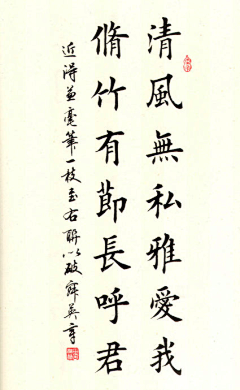 清風無私雅愛我
脩竹有節長呼君
近得兼毫筆一枝書右聯以破寂英章